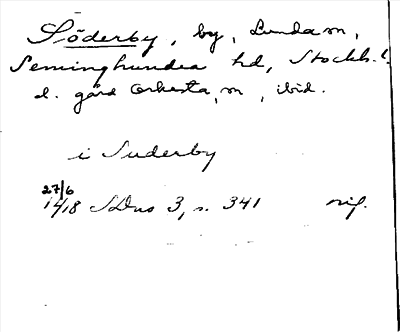 Söderby, by, Lunda sn,
Seminghundra hd, Stockh. l.
el. gård Orkesta sn, ibid.
i Suderby
27/6
1418 SDns 3, s. 341 orig.